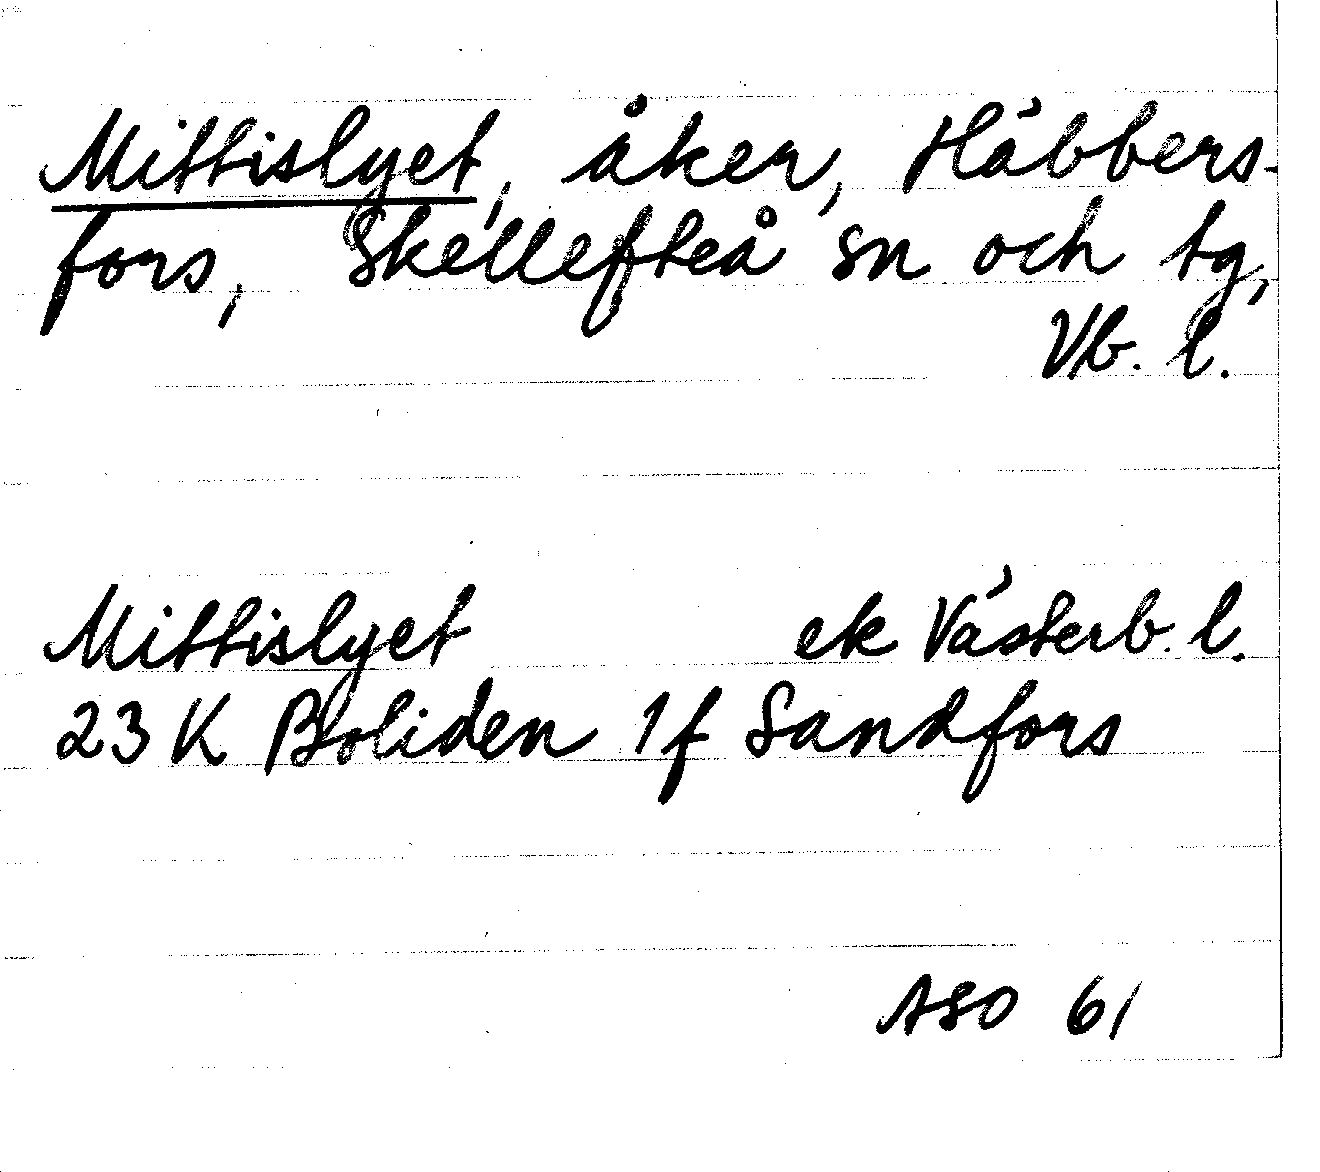 Mittislyet, åker, Häbbers-
fors, Skellefteå sn och tg,
Vb. l.
Mittislyet ek Västerb. l.
23 K Boliden 1f Sandfors
ASO 61